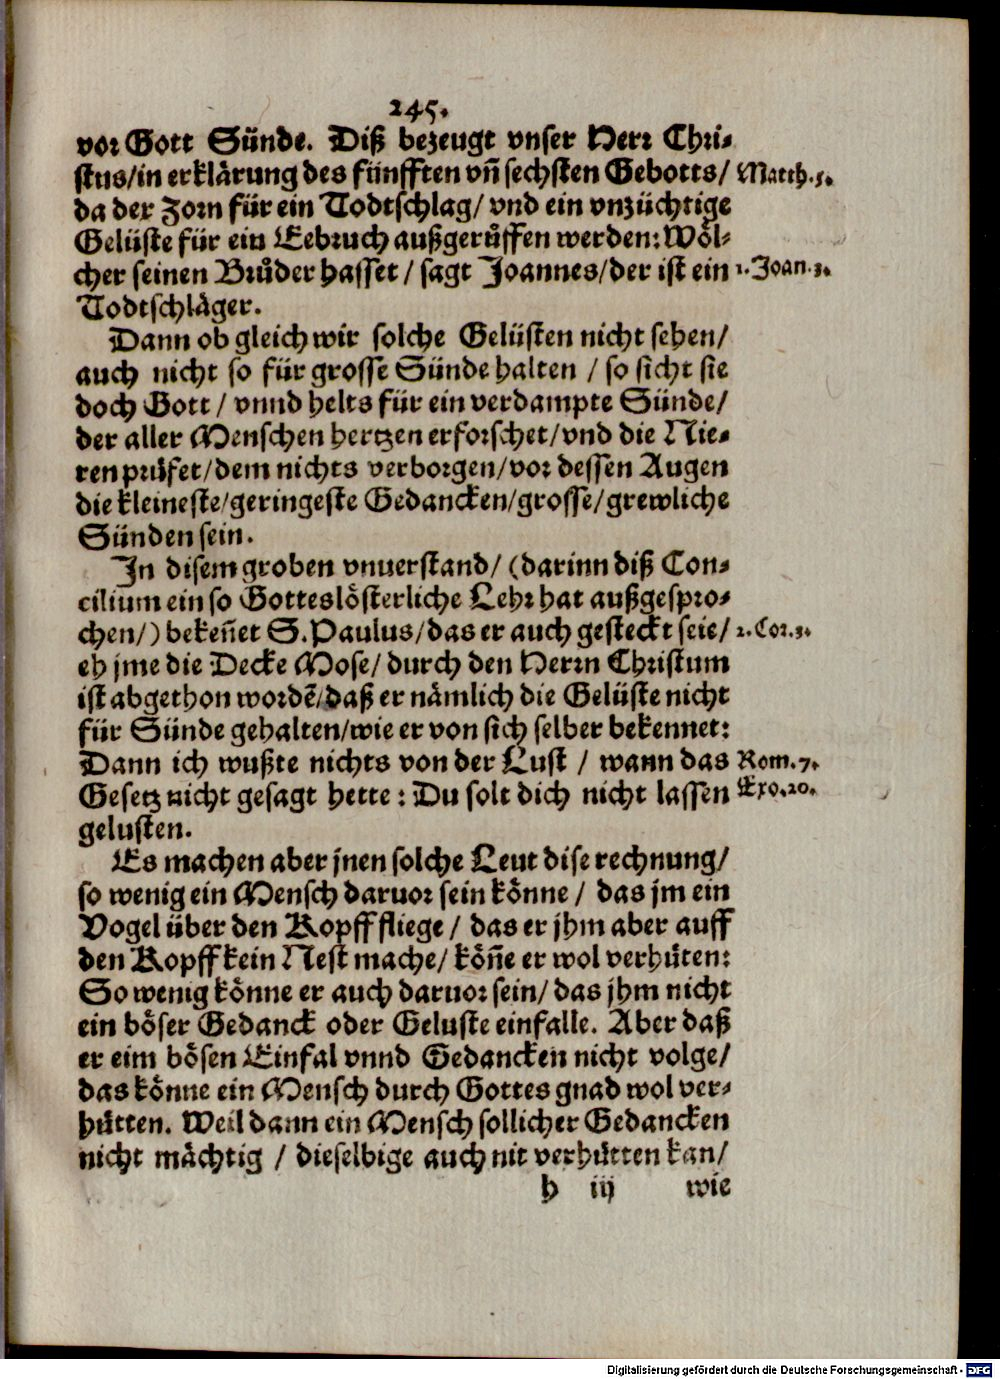 245.
vor Gott Sünde. Diß bezeugt vnser Herr Chri-
stus/in erklärung des fünfften vñ sechsten Gebotts/ Matth.5.
da der Zorn für ein Todtschlag/ vnd ein vnzüchtige
Gelüste für ein Eebruch außgerůffen werden: Wöl-
cher seinen Brůder hasset / sagt Joannes/der ist ein 1.Joan.3.
Todtschläger.
Dann ob gleich wir solche Gelüsten nicht sehen/
auch nicht so für grosse Sünde halten / so sicht sie
doch Gott / vnnd helts für ein verdampte Sünde/
der aller Menschen hertzen erforschet/vnd die Nie-
ren prüfet/dem nichts verborgen/vor dessen Augen
die kleineste/geringeste Gedancken/grosse/grewliche
Sünden sein.
In disem groben vnuerstand/ (darinn diß Con-
cilium ein so Gotteslösterliche Lehr hat außgespro-
chen/) bekeñet S.Paulus/das er auch gesteckt seie/ 2.Cor.3.
eh jme die Decke Mose/durch den Herrn Christum
ist abgethon wordẽ/daß er nämlich die Gelüste nicht
für Sünde gehalten/wie er von sich selber bekennet:
Dann ich wußte nichts von der Lust / wann das Rom.7.
Gesetz nicht gesagt hette : Du solt dich nicht lassen Exo.20.
gelusten.
Es machen aber jnen solche Leut dise rechnung/
so wenig ein Mensch daruor sein könne / das jm ein
Vogel über den Kopff fliege / das er jhm aber auff
den Kopff kein Nest mache/ köñe er wol verhüten:
So wenig könne er auch daruor sein/ das jhm nicht
ein böser Gedanck oder Geluste einfalle. Aber daß
er eim bösen Einfal vnnd Gedancken nicht volge/
das könne ein Mensch durch Gottes gnad wol ver-
hütten. Weil dann ein Mensch sollicher Gedancken
nicht mächtig / dieselbige auch nit verhütten kan/
h iij wie
Digitalisierung gefördert durch die Deutsche Forschungsgemeinschaft - DFG